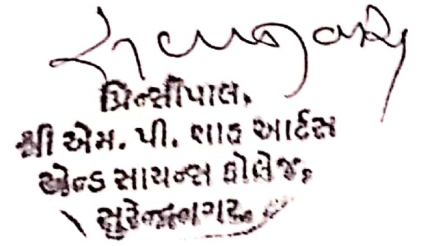 પ્રિન્સીપાલ,
શ્રી એમ. પી. શાહ આર્ટસ
એન્ડ સાયન્સ કોલેજ,
સુરેન્દ્રનગર.